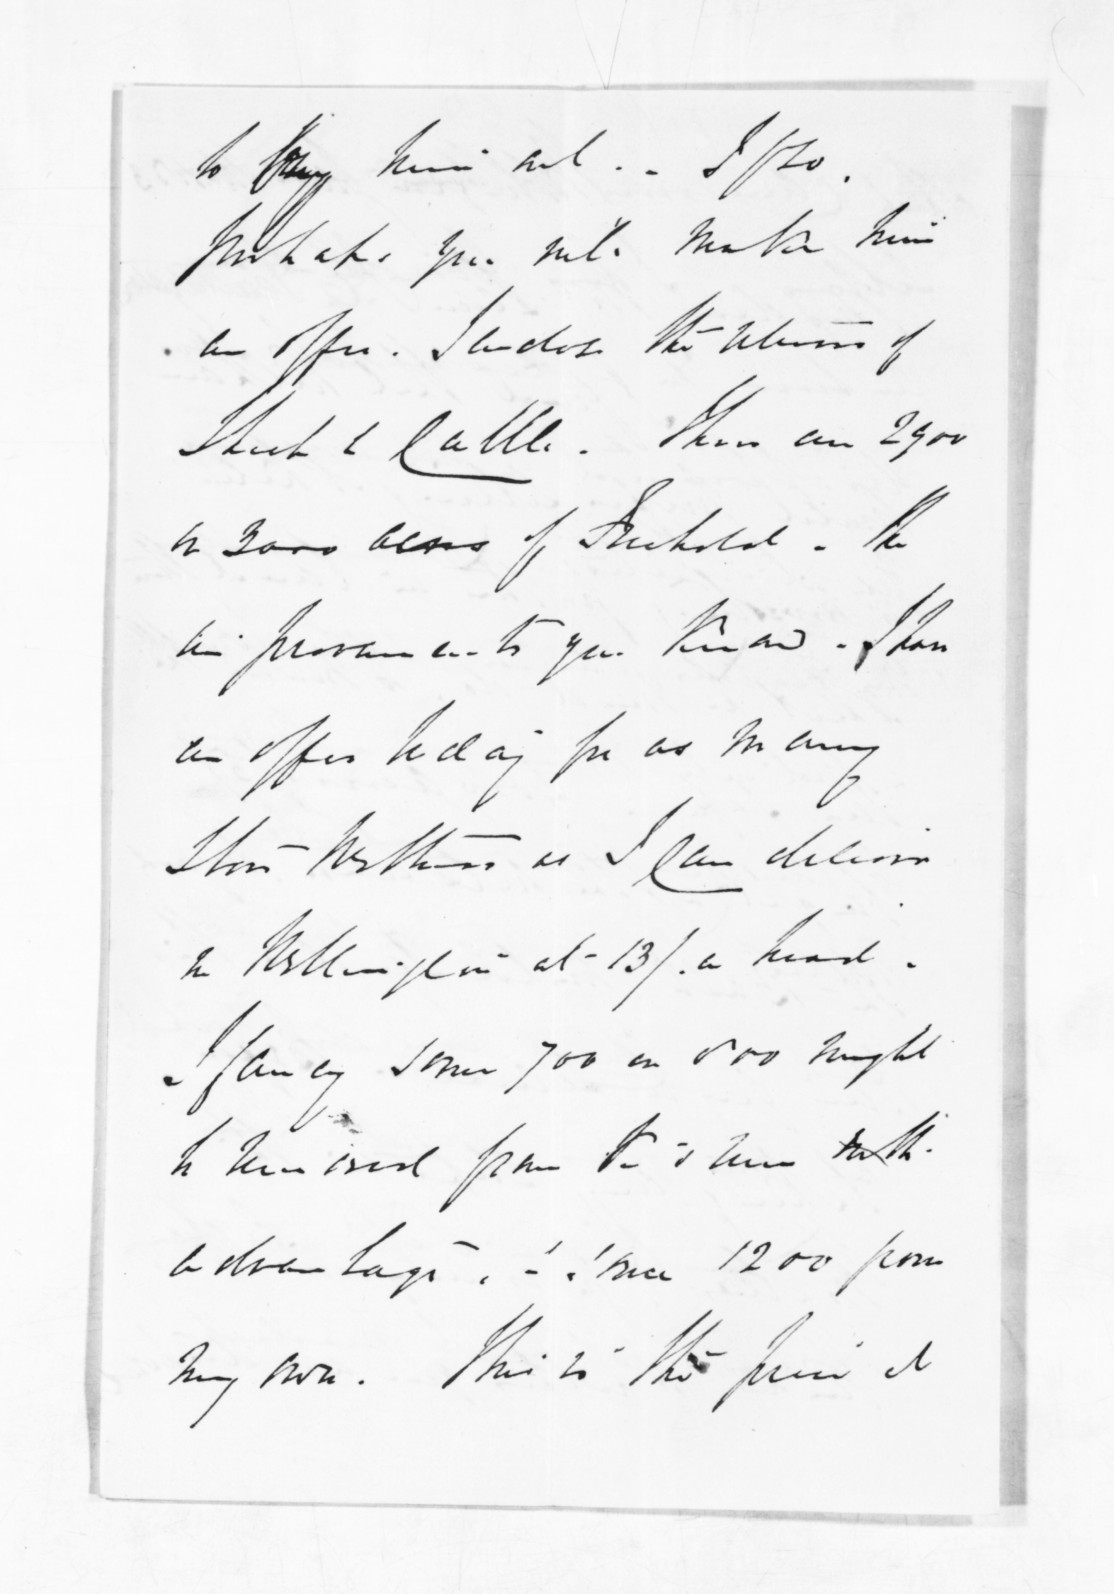 to buy him out . . If so,
perhaps you will make him
an offer. I enclose the returns of
Sheep & Cattle. There are 2900
or 3000 acres of Freehold - the
improvements you know. I have
an offer today for as many
Store Wethers as I can deliver
in Wellington at 13/. a head.
I fancy some 700 or 800 might
be removed from the run with
advantage, - & some 1200 from
my own. This is the price at